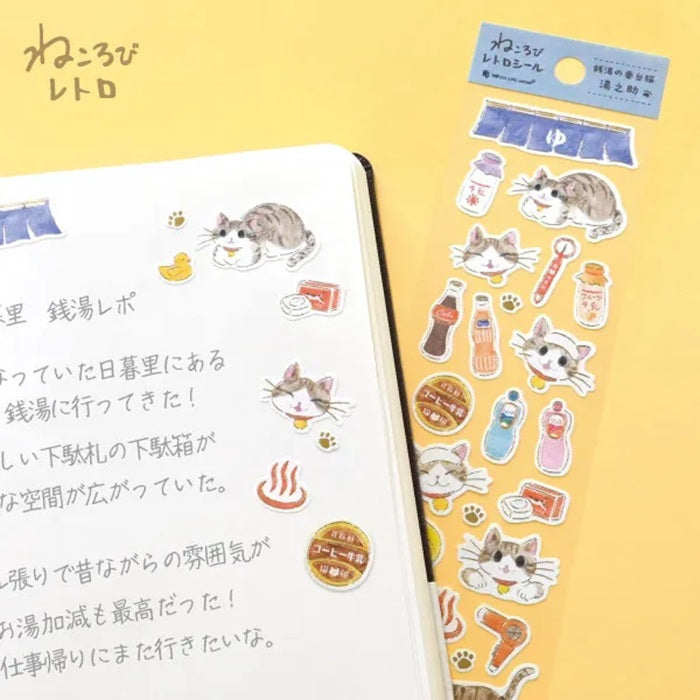 ねころび
レトロ
ねころび
レトロシール
銭湯の番台猫
湯之助
ゆ
牛乳
フルーツ
牛乳
Cola
コーヒー牛乳
里 銭湯レポ
なっていた日暮里にある
銭湯に行ってきた！
しい下駄札の下駄箱が
な空間が広がっていた。
コーヒー牛乳
ル張りで昔ながらの雰囲気が
お湯加減も最高だった！
仕事帰りにまた行きたいな。